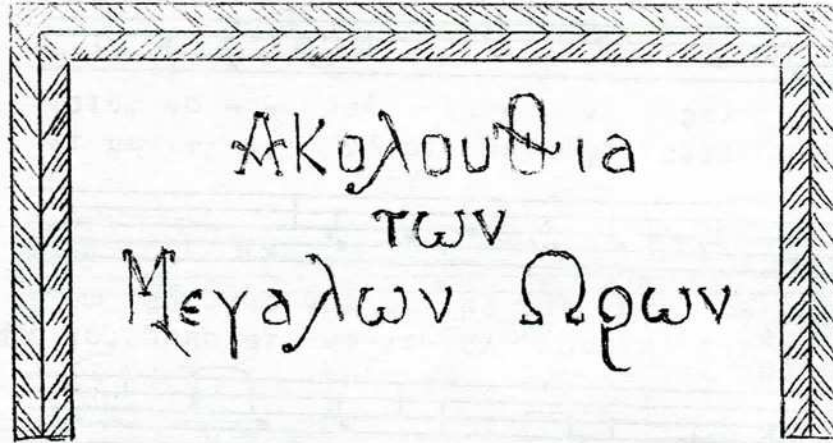 Ακολουθια
των
Μεγαλων Ωρων